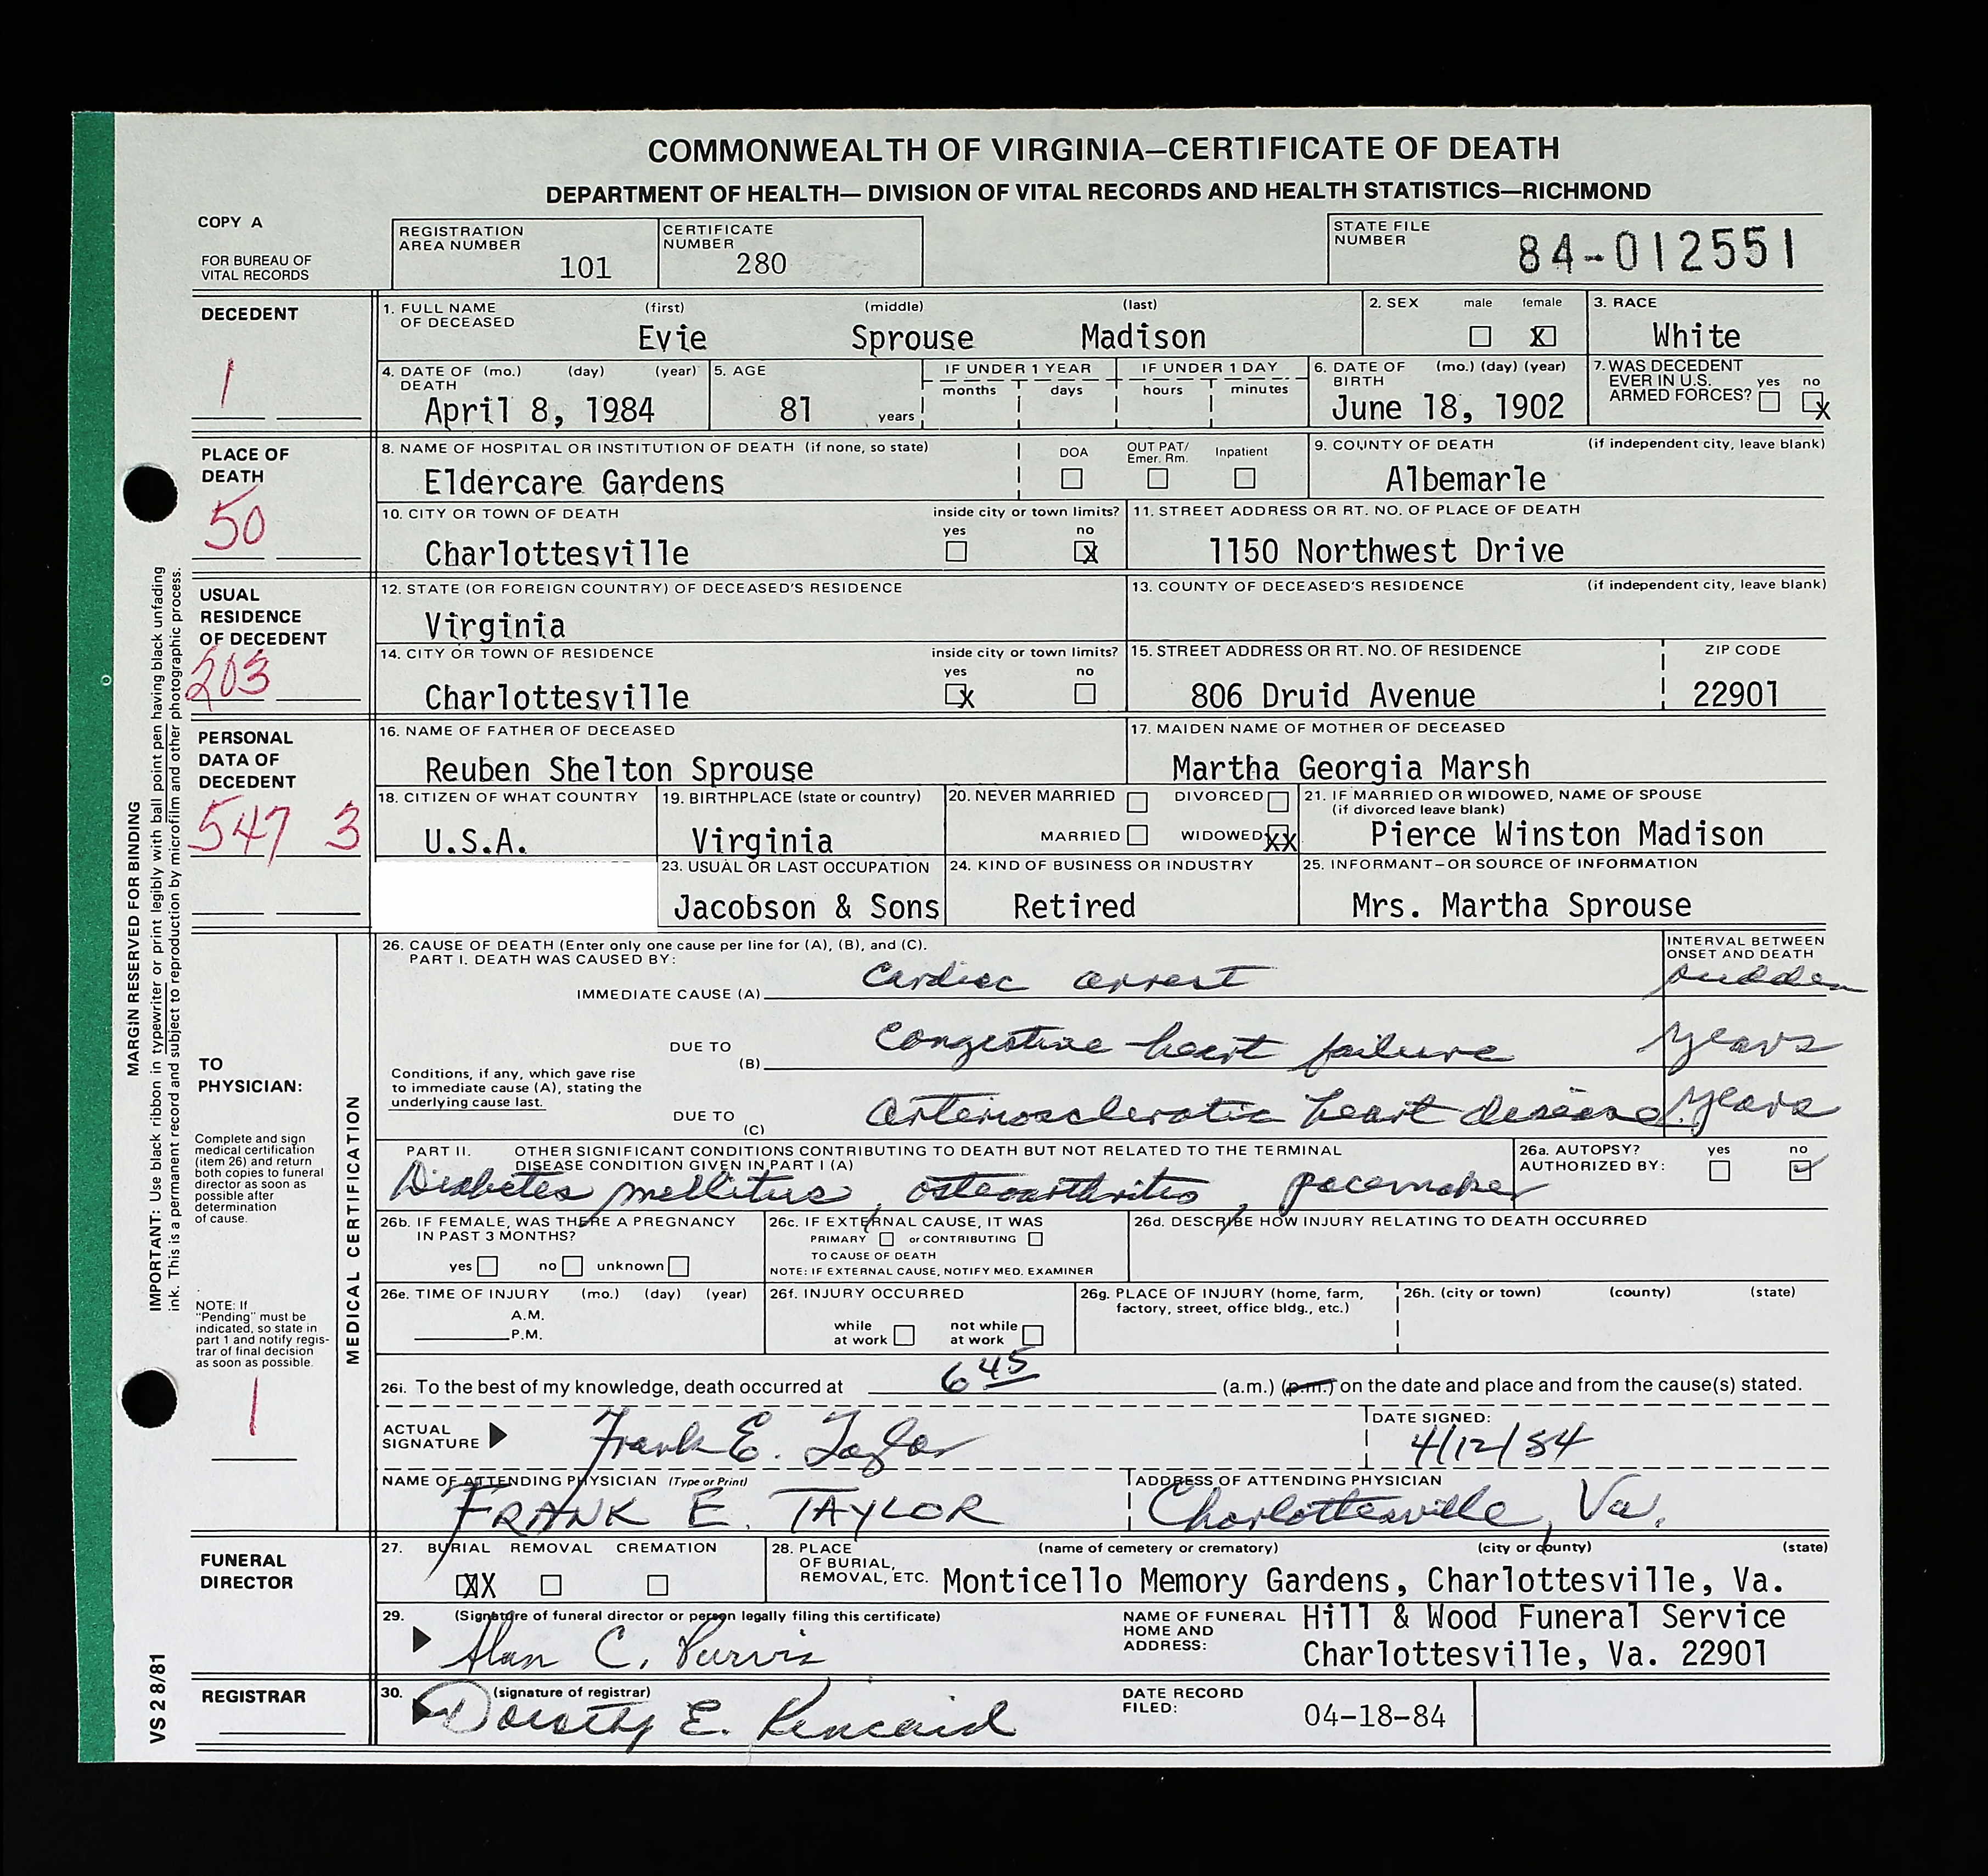 COMMONWEALTH OF VIRGINIA—CERTIFICATE OF DEATH
DEPARTMENT OF HEALTH— DIVISION OF VITAL RECORDS AND HEALTH STATISTICS—RICHMOND
COPY A
FOR BUREAU OF
VITAL RECORDS
REGISTRATION
AREA NUMBER
101
CERTIFICATE
NUMBER
280
STATE FILE
NUMBER
84-012551
DECEDENT
1
1. FULL NAME
OF DECEASED
(first) (middle) (last)
Evie Sprouse Madison
2. SEX male female
X
3. RACE
White
4. DATE OF DEATH (mo.) (day) (year)
April 8, 1984
5. AGE
81 years
IF UNDER 1 YEAR
months days
IF UNDER 1 DAY
hours minutes
6. DATE OF BIRTH (mo.) (day) (year)
June 18, 1902
7. WAS DECEDENT
EVER IN U.S.
ARMED FORCES? yes no
X
PLACE OF
DEATH
50
8. NAME OF HOSPITAL OR INSTITUTION OF DEATH (if none, so state)
Eldercare Gardens
DOA OUT PAT/ Emer. Rm. Inpatient
9. COUNTY OF DEATH (if independent city, leave blank)
Albemarle
10. CITY OR TOWN OF DEATH inside city or town limits?
yes no
Charlottesville X
11. STREET ADDRESS OR RT. NO. OF PLACE OF DEATH
1150 Northwest Drive
USUAL
RESIDENCE
OF DECEDENT
203
12. STATE (OR FOREIGN COUNTRY) OF DECEASED'S RESIDENCE
Virginia
13. COUNTY OF DECEASED'S RESIDENCE (if independent city, leave blank)
14. CITY OR TOWN OF RESIDENCE inside city or town limits?
yes no
Charlottesville X
15. STREET ADDRESS OR RT. NO. OF RESIDENCE ZIP CODE
806 Druid Avenue 22901
PERSONAL
DATA OF
DECEDENT
547 3
16. NAME OF FATHER OF DECEASED
Reuben Shelton Sprouse
17. MAIDEN NAME OF MOTHER OF DECEASED
Martha Georgia Marsh
18. CITIZEN OF WHAT COUNTRY
U.S.A.
19. BIRTHPLACE (state or country)
Virginia
20. NEVER MARRIED DIVORCED
MARRIED WIDOWED XX
21. IF MARRIED OR WIDOWED, NAME OF SPOUSE
(if divorced leave blank)
Pierce Winston Madison
23. USUAL OR LAST OCCUPATION
Jacobson & Sons
24. KIND OF BUSINESS OR INDUSTRY
Retired
25. INFORMANT—OR SOURCE OF INFORMATION
Mrs. Martha Sprouse
MARGIN RESERVED FOR BINDING
IMPORTANT: Use black ribbon in typewriter or print legibly with ball point pen having black unfading
ink. This is a permanent record and subject to reproduction by microfilm and other photographic process.
VS 2 8/81
TO
PHYSICIAN:
Complete and sign
medical certification
(item 26) and return
both copies to funeral
director as soon as
possible after
determination
of cause.
NOTE: If
"Pending" must be
indicated, so state in
part 1 and notify regis-
trar of final decision
as soon as possible.
1
MEDICAL CERTIFICATION
26. CAUSE OF DEATH (Enter only one cause per line for (A), (B), and (C).
PART I. DEATH WAS CAUSED BY:
INTERVAL BETWEEN
ONSET AND DEATH
IMMEDIATE CAUSE (A) Cardiac arrest sudden
DUE TO (B) Congestive heart failure years
Conditions, if any, which gave rise
to immediate cause (A), stating the
underlying cause last.
DUE TO (C) Arteriosclerotic heart disease years
PART II. OTHER SIGNIFICANT CONDITIONS CONTRIBUTING TO DEATH BUT NOT RELATED TO THE TERMINAL
DISEASE CONDITION GIVEN IN PART I (A)
Diabetes mellitus, osteoarthritis, pacemaker
26a. AUTOPSY? yes no
AUTHORIZED BY:
26b. IF FEMALE, WAS THERE A PREGNANCY
IN PAST 3 MONTHS?
yes no unknown
26c. IF EXTERNAL CAUSE, IT WAS
PRIMARY or CONTRIBUTING
TO CAUSE OF DEATH
NOTE: IF EXTERNAL CAUSE, NOTIFY MED. EXAMINER
26d. DESCRIBE HOW INJURY RELATING TO DEATH OCCURRED
26e. TIME OF INJURY (mo.) (day) (year)
A.M.
P.M.
26f. INJURY OCCURRED
while at work not while at work
26g. PLACE OF INJURY (home, farm,
factory, street, office bldg., etc.)
26h. (city or town) (county) (state)
26i. To the best of my knowledge, death occurred at 6 45 (a.m.) (p.m.) on the date and place and from the cause(s) stated.
ACTUAL
SIGNATURE
Frank E. Taylor
DATE SIGNED:
4/12/84
NAME OF ATTENDING PHYSICIAN (Type or Print)
FRANK E. TAYLOR
ADDRESS OF ATTENDING PHYSICIAN
Charlottesville, Va.
FUNERAL
DIRECTOR
27. BURIAL REMOVAL CREMATION
XX
28. PLACE
OF BURIAL,
REMOVAL, ETC.
(name of cemetery or crematory) (city or county) (state)
Monticello Memory Gardens, Charlottesville, Va.
29. (Signature of funeral director or person legally filing this certificate)
Alan C. Purvis
NAME OF FUNERAL
HOME AND
ADDRESS:
Hill & Wood Funeral Service
Charlottesville, Va. 22901
REGISTRAR
30. (signature of registrar)
Dorothy E. Kincaid
DATE RECORD
FILED:
04-18-84